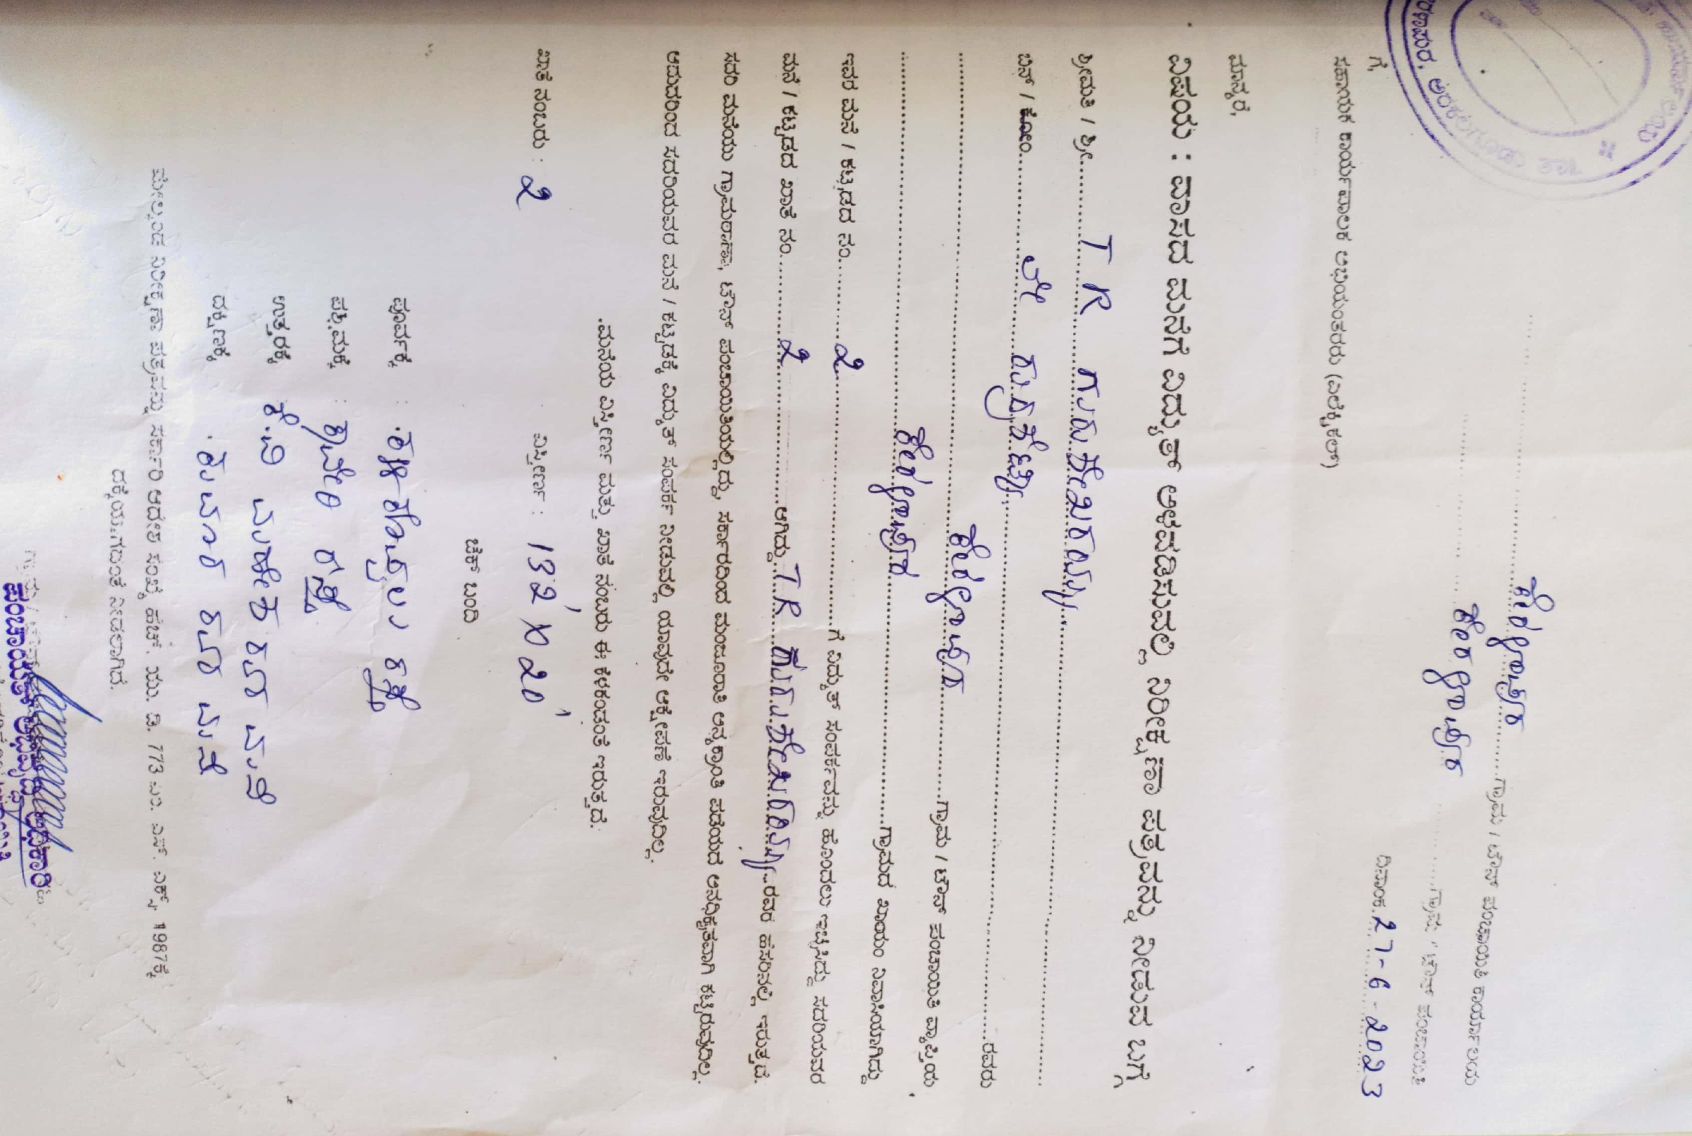 ಕೇರಳಾಪುರ ಗ್ರಾಮ / ಟೌನ್ ಪಂಚಾಯಿತಿ ಕಾರ್ಯಾಲಯ
ಕೇರಳಾಪುರ ಗ್ರಾಮ / ಟೌನ್ ಪಂಚಾಯಿತಿ
ದಿನಾಂಕ. 27-6-2023
ಗೆ,
ಸಹಾಯಕ ಕಾರ್ಯಪಾಲಕ ಅಭಿಯಂತರರು (ಎಲೆಕ್ಟ್ರಿಕಲ್)
ಮಾನ್ಯರೆ,
ವಿಷಯ : ವಾಸದ ಮನೆಗೆ ವಿದ್ಯುತ್ ಅಳವಡಿಸುವಲ್ಲಿ ನಿರೀಕ್ಷಣಾ ಪತ್ರವನ್ನು ನೀಡುವ ಬಗ್ಗೆ
ಶ್ರೀಮತಿ / ಶ್ರೀ. T R ಗುರುಶೇಖರಯ್ಯ
ಬಿನ್ / ಕೋಂ. ಲೇ ರುದ್ರಶೆಟ್ಟಿ
ರವರು
ಕೇರಳಾಪುರ ಗ್ರಾಮ / ಟೌನ್ ಪಂಚಾಯಿತಿ ವ್ಯಾಪ್ತಿಯ
ಕೇರಳಾಪುರ ಗ್ರಾಮದ ಖಾಯಂ ನಿವಾಸಿಯಾಗಿದ್ದು
ಇವರ ಮನೆ / ಕಟ್ಟಡದ ನಂ. 2 ಗೆ ವಿದ್ಯುತ್ ಸಂಪರ್ಕವನ್ನು ಹೊಂದಲು ಇಚ್ಛಿಸಿದ್ದು ಸದರಿಯವರ
ಮನೆ / ಕಟ್ಟಡದ ಖಾತೆ ನಂ. 2 ಆಗಿದ್ದು T.R ಗುರುಶೇಖರಯ್ಯ ರವರ ಹೆಸರಿನಲ್ಲಿ ಇರುತ್ತದೆ.
ಸದರಿ ಮನೆಯು ಗ್ರಾಮಠಾಣಾ, ಟೌನ್ ಪಂಚಾಯಿತಿಯಲ್ಲಿದ್ದು, ಸರ್ಕಾರದಿಂದ ಮಂಜೂರಾತಿ ಅನ್ಯಕ್ರಾಂತಿ ಪಡೆಯದೆ ಅನಧಿಕೃತವಾಗಿ ಕಟ್ಟಿರುವುದಿಲ್ಲ.
ಆದುದರಿಂದ ಸದರಿಯವರ ಮನೆ / ಕಟ್ಟಡಕ್ಕೆ ವಿದ್ಯುತ್ ಸಂಪರ್ಕ ನೀಡುವಲ್ಲಿ ಯಾವುದೇ ಆಕ್ಷೇಪಣೆ ಇರುವುದಿಲ್ಲ.
ಮನೆಯ ವಿಸ್ತೀರ್ಣ ಮತ್ತು ಖಾತೆ ನಂಬರು ಈ ಕೆಳಕಂಡಂತೆ ಇರುತ್ತದೆ.
ಖಾತೆ ನಂಬರು : 2 ವಿಸ್ತೀರ್ಣ : 132' X 20'
ಚೆಕ್ ಬಂದಿ
ಪೂರ್ವಕ್ಕೆ : ರಸ್ತೆ
ಪಶ್ಚಿಮಕ್ಕೆ : ಕಾವೇರಿ ರಸ್ತೆ
ಉತ್ತರಕ್ಕೆ ಕೆ.ಎ ಮನೆ
ದಕ್ಷಿಣಕ್ಕೆ ಮನೆ
ಮೇಲ್ಕಂಡ ನಿರೀಕ್ಷಣಾ ಪತ್ರವನ್ನು ಸರ್ಕಾರಿ ಆದೇಶ ಸಂಖ್ಯೆ ಹೆಚ್. ಯು. ಡಿ. 773 ಎಂ. ಎನ್. ಎಕ್ಸ್. 1987ಕ್ಕೆ
ದಕ್ಕೆಯಾಗದಂತೆ ನೀಡಲಾಗಿದೆ.
ಪಂಚಾಯಿತಿ ಅಭಿವೃದ್ಧಿ ಅಧಿಕಾರಿ